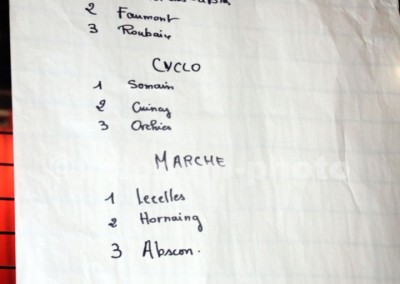 2 Faumont
3 Roubaix
CYCLO
1 Somain
2 Cuincy
3 Orchies
MARCHE
photo
1 Lecelles
2 Hornaing
3 Abscon.